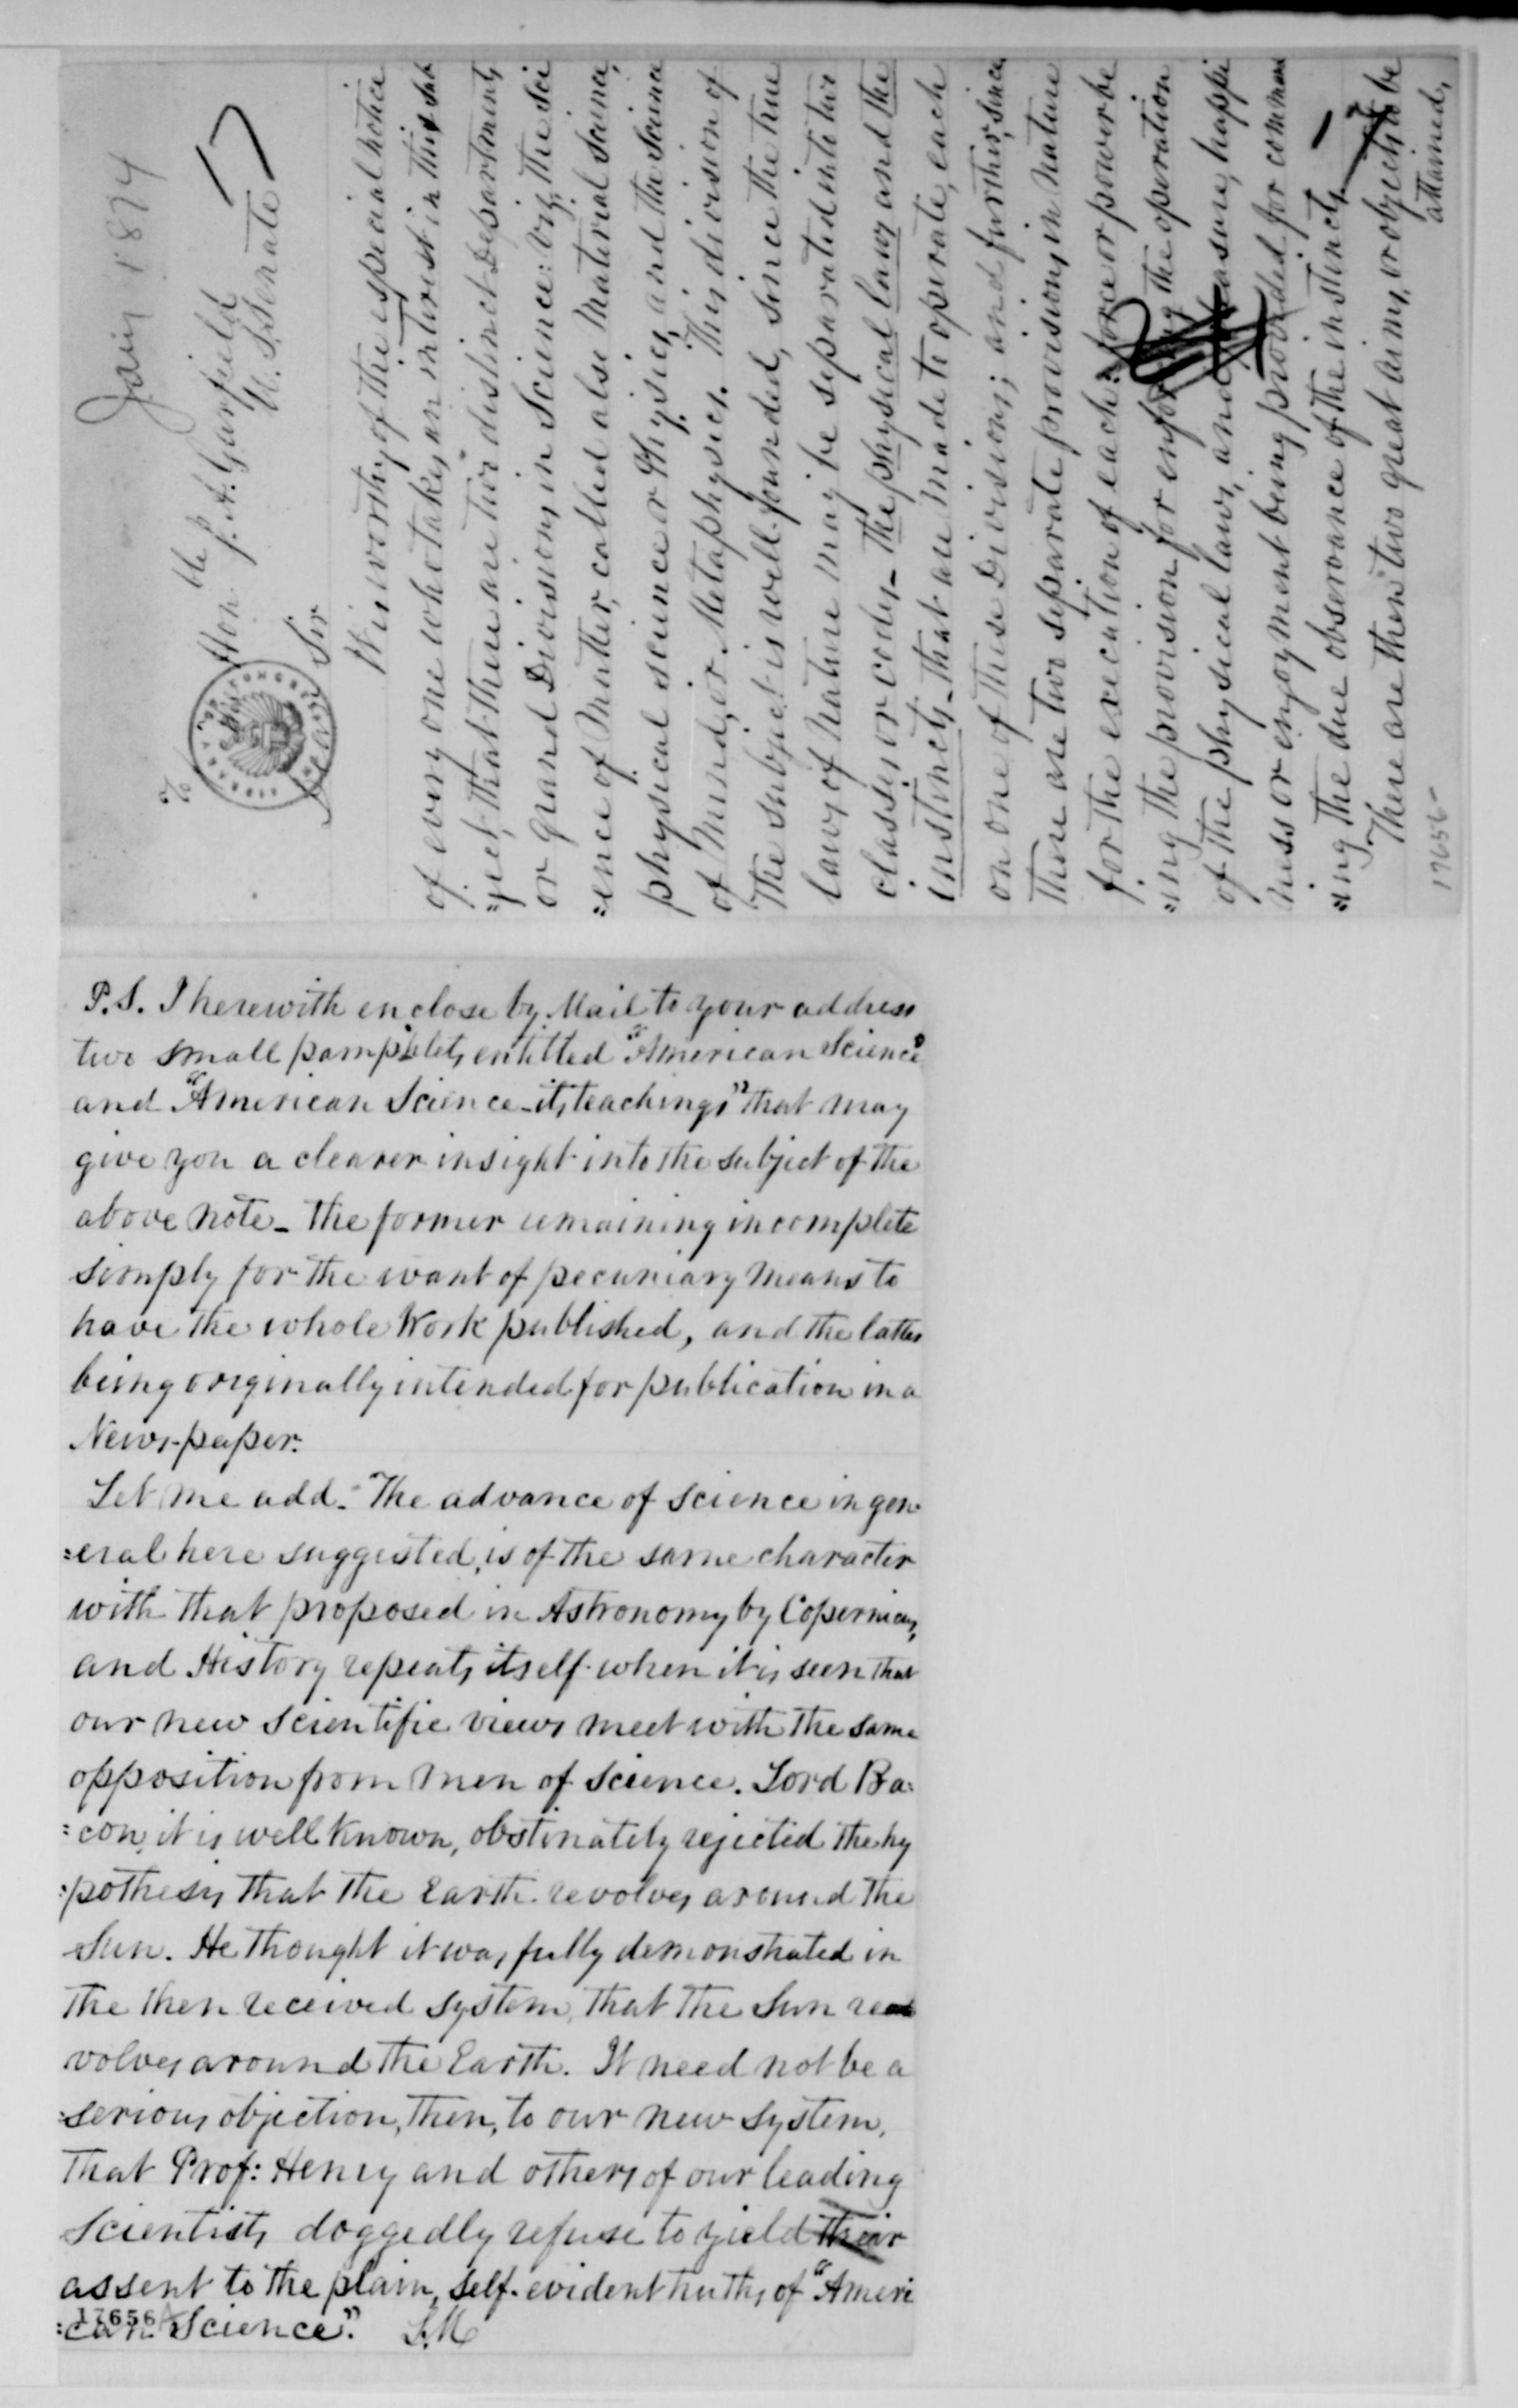 Jany 1874
17
Hon ble J. A. Garfield
U. S. Senate
Dear Sir
It is worthy of the especial notice
of every one who takes an interest in this sub
=ject, that there are two distinct Departments
or grand Divisions in Science: viz, the Sci
=ence of Matter, called also Material Science,
physical science or Physics, and the Science
of Mind, or Metaphysics. This division of
the subject is well-founded, since the true
laws of Nature may be separated into two
classes or codes - the physical laws and the
instincts - that are made to operate, each
on one of these Divisions; and further, since
there are two separate provisions in Nature
for the execution of each: force or power be
=ing the provision for enforcing the operation
of the physical laws, and pleasure, happi
ness or enjoyment being provided for command
=ing the due observance of the instincts.
There are then two great aims, or objects to be
attained,
17656-
P.S. I herewith enclose by Mail to your address
two small pamphlets entitled "American Science"
and "American Science - its teachings" that may
give you a clearer insight into the subject of the
above note - the former remaining incomplete
simply for the want of pecuniary means to
have the whole Work published, and the latter
being originally intended for publication in a
News-paper.
Let me add. The advance of science in gen
=eral here suggested, is of the same character
with that proposed in Astronomy by Copernicus,
and History repeats itself when it is seen that
our new scientific views meet with the same
opposition from men of science. Lord Ba=
=con, it is well known, obstinately rejected the hy
=pothesis that the Earth revolves around the
Sun. He thought it was fully demonstrated in
the then received system, that the Sun re
volves around the Earth. It need not be a
serious objection, then, to our new system,
that Prof: Henry and others of our leading
Scientists doggedly refuse to yield their
assent to the plain, self-evident truths of "Ameri
=can Science". L.M
17656